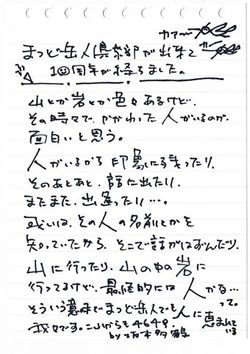 まつど岳人倶楽部が出来て
10周年が経ちました。
山とか岩とか色々あるけど、
その時々で、かかわった人がいるのが
面白いと思う。
人がいるから印象に残ったり、
そのあとあと、話に出たり、
またまた、出逢ったり…。
或いは、その人の名前とかを
知っていたから、そこで話がはずんだり、
山に行ったり、山の中の岩に
行ってるけど、最終的には人が
そういう意味でまつど岳人でも人に恵まれている
我々です。これからも4649。
by